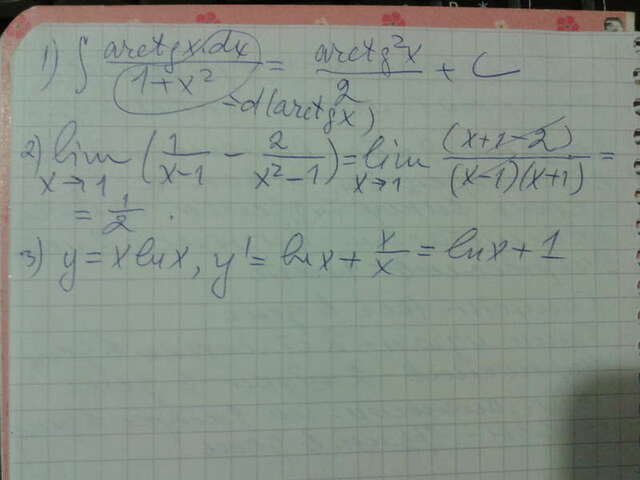 1) ∫ arctgx dx / 1+x² = arctg²x / 2 + C
= d(arctgx)
2) lim x→1 (1/x-1 - 2/x²-1) = lim x→1 (x+1-2) / (x-1)(x+1) =
= 1/2 .
3) y = x lnx, y' = lnx + x/x = lnx + 1